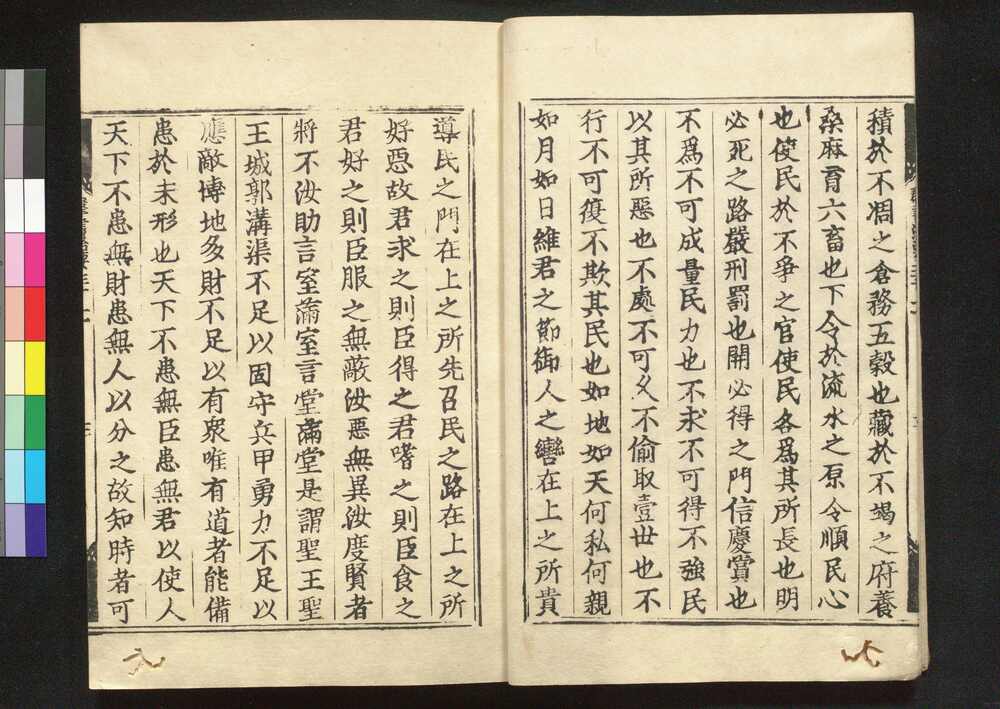 積於不涸之倉務五穀也藏於不竭之府養
桑麻育六畜也下令於流水之原令順民心
也使民於不爭之官使民各爲其所長也明
必死之路嚴刑罰也開必得之門信慶賞也
不爲不可成量民力也不求不可得不強民
以其所惡也不處不可久不偷取壹世也不
行不可復不欺其民也如地如天何私何親
如月如日維君之節御人之轡在上之所貴
導民之門在上之所先召民之路在上之所
好惡故君求之則臣得之君嗜之則臣食之
君好之則臣服之無蔽汝惡無異汝度賢者
將不汝助言室滿室言堂滿堂是謂聖王聖
王城郭溝渠不足以固守兵甲勇力不足以
應敵博地多財不足以有衆唯有道者能備
患於未形也天下不患無臣患無君以使人
天下不患無財患無人以分之故知時者可